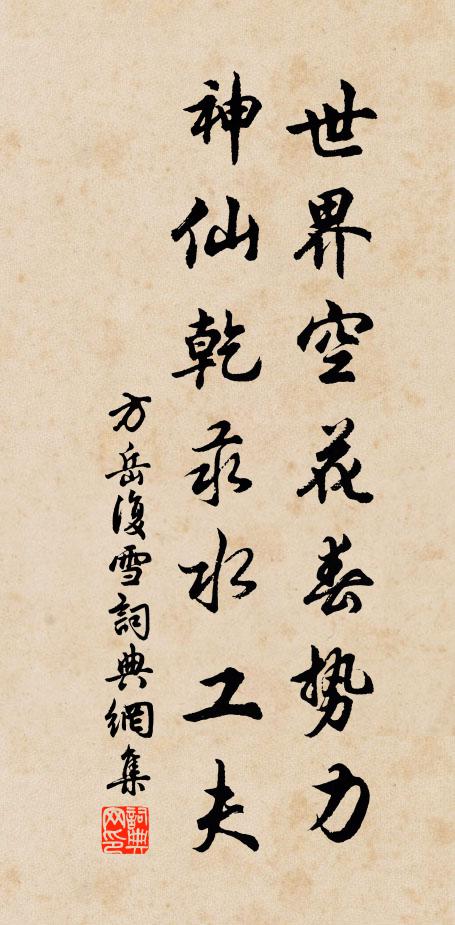 世界空花春勢力
神仙乾汞水工夫
方岳復雪詞典網集
詞典網印